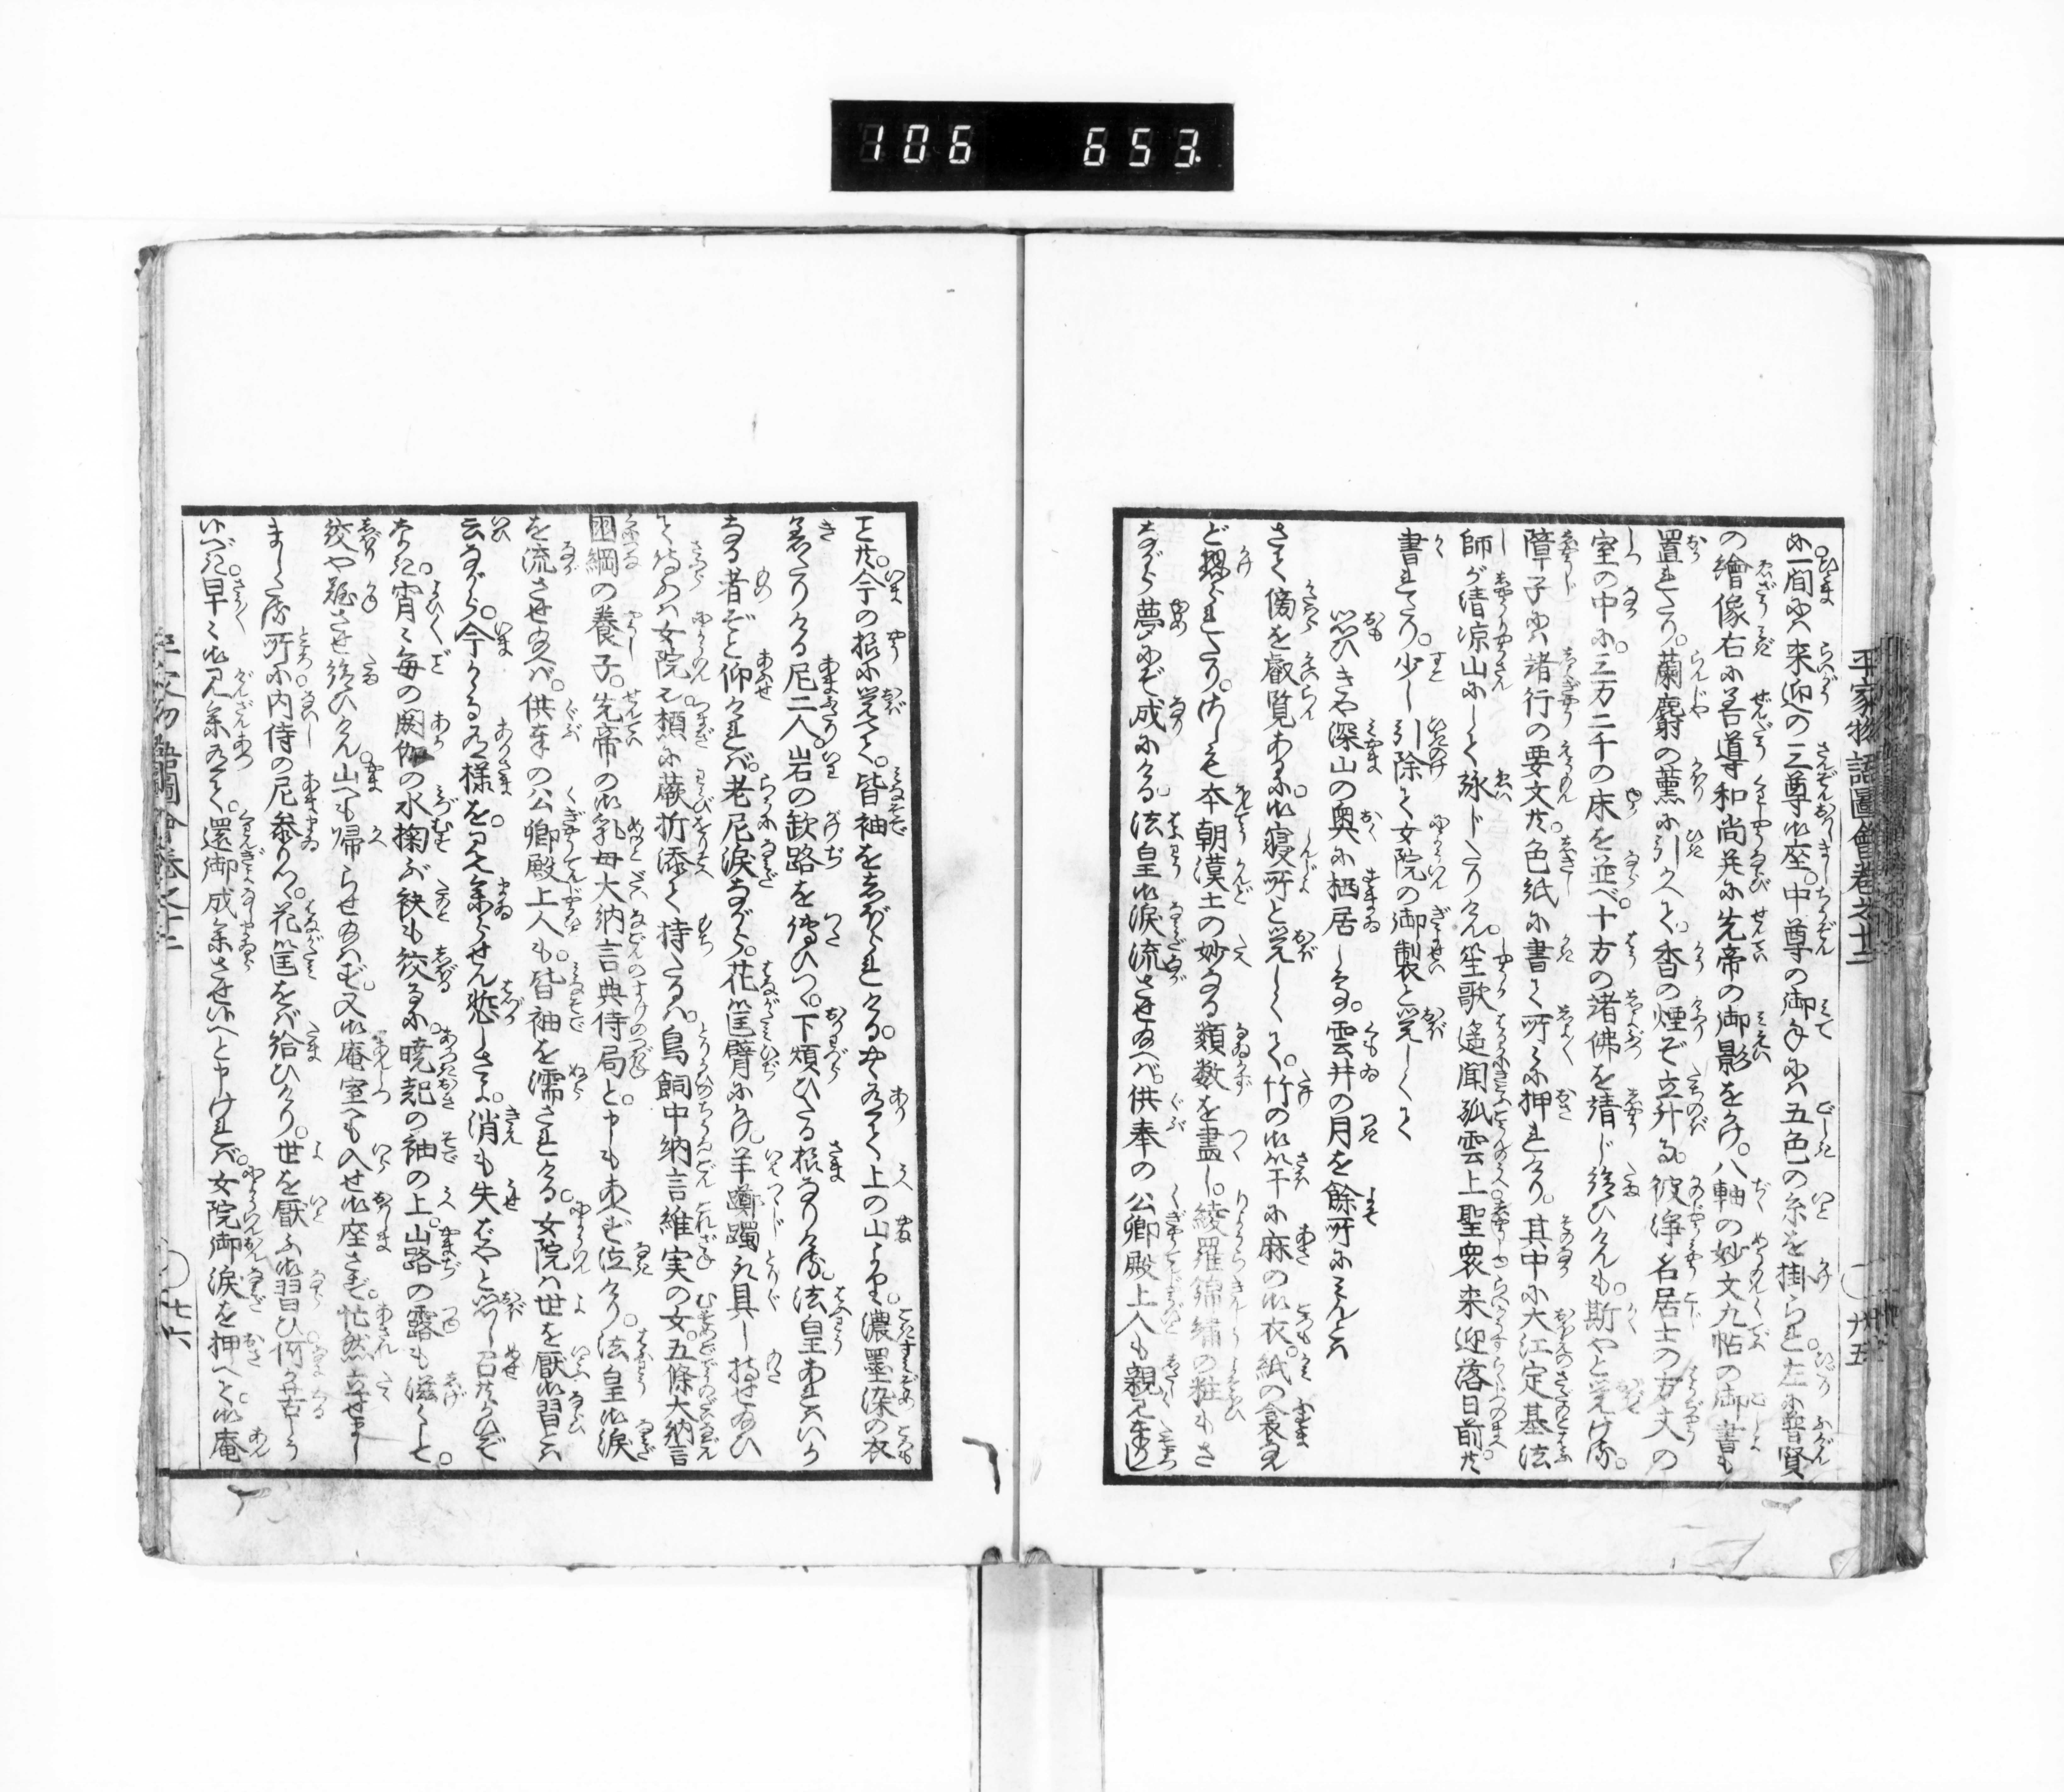 106 653
平家物語圖會卷之十二
十五
め一間には来迎の三尊御座。中尊の御手には五色の糸を掛られ。左に普賢
の繪像右に善導和尚并に先帝の御影をかけ。八軸の妙文九帖の御書も
置れたり。蘭麝の薫に引かへて。香の煙ぞ立升る。彼浄名居士の方丈の
室の中に。三万二千の床を並べ。十方の諸佛を請じ給ひけんも。斯やと覚けり。
障子には諸行の要文共。色紙に書て所々に押れけり。其中に大江定基法
師が清凉山にして詠じたりけん。笙歌遥聞孤雲上聖衆来迎落日前共
書れたり。少し引除て女院の御製と覚しくて
思ひきや深山の奥に栖居して。雲井の月を餘所にみんとは
さて傍を叡覧あるに。御寝所と覚しくて。竹の御竿に麻の御衣。紙の衾な
ど掛られたり。さしも本朝漢土の妙なる類数を盡し。綾羅錦繍の粧もさ
ながら夢にぞ成にける。法皇御涙流させ給へば。供奉の公卿殿上人も親見奉りし
こと共。今の様に覚て。皆袖をしぼられける。やゝ有て上の山より。濃墨染の衣
着たりける尼二人。岩の歓路を傳ひつゝ。下煩ひたる様なりけり。法皇あれはいか
なる者ぞと仰ければ。老尼涙ながら。花筐臂にかけ。羊躑躅取具し持せ給ひ
て候のは女院也。栖に蕨折添て持たるは。鳥飼中納言維実の女。五條大納言
国綱の養子。先帝の御乳母大納言典侍局と。申もあへず泣けり。法皇御涙
を流させ給へば。供奉の公卿殿上人も。皆袖を濡されける。女院は世を厭習とは
云ながら。今かゝる有様を。見へ参らせん悲しさよ。消も失ばやと思し召せどかひぞ
なき。宵々毎の閼伽の水掬ぶ袂も絞るに。暁起の袖の上。山路の露も滋くして。
絞や難させ給ひけん。山へも帰らせ給はず。又御庵室へも入せ御座さず。忙然立せまし
ましたる所に内侍の尼参りて。花筐をば給ひけり。世を厭ふ御習ひ何か苦しう
候べき。早々御見参有て。還御成参させ候へと申ければ。女院御涙を押へて。御庵
平家物語圖會卷之十二
十六